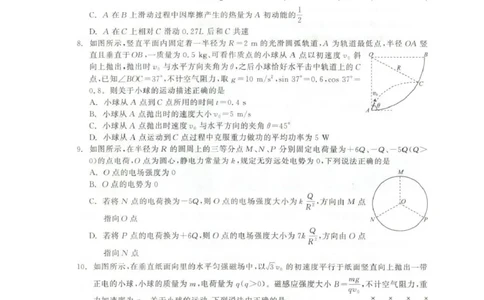 C. A在B上滑动过程中因摩擦产生的热量为A初动能的1/2
D. A在C上相对C滑动0.27L后和C共速
8. 如图所示,竖直平面内固定着一半径为R=2 m的光滑圆弧轨道,A为轨道最低点,半径OA竖
直且垂直于OB,一质量为0.5 kg,可看作质点的小球从A点以初速度v₀斜
向上抛出,抛出时v₀与水平方向夹角为θ,之后小球恰好水平击中轨道上的C
点,已知∠BOC=37°,不计空气阻力,取g=10 m/s²,sin 37°=0.6,cos 37°=
0.8。则关于小球的运动描述正确的是
A. 小球从A点到C点所用的时间t=0.4 s
B. 小球从A点抛出时的速度大小v₀=5 m/s
C. 小球从A点抛出时速度v₀与水平方向的夹角θ=45°
D. 小球从A点运动到C点过程中克服重力做功的平均功率为5 W
O
B
R
C
v₀
θ
A
9. 如图所示,在半径为R的圆周上的三等分点M、N、P分别固定电荷量为+6Q、-Q、-5Q(Q>
0)的点电荷,O点为圆心,静电力常量为k,规定无穷远处电势为0,下列说法正确的是
A. O点的电场强度为0
B. O点的电势为0
C. 若将N点的电荷换为-5Q,则O点的电场强度大小为k Q/R²,方向由M点
指向O点
D. 若将P点的电荷换为+6Q,则O点的电场强度大小为7k Q/R²,方向由O点
指向N点
M
O
N
P
10. 如图所示,在垂直纸面向里的水平匀强磁场中,以√3v₀的初速度平行于纸面竖直向上抛出一带
正电的小球,小球的质量为m,电荷量为q(q>0)。磁感应强度大小B=mg/qv₀,不计空气阻力,重